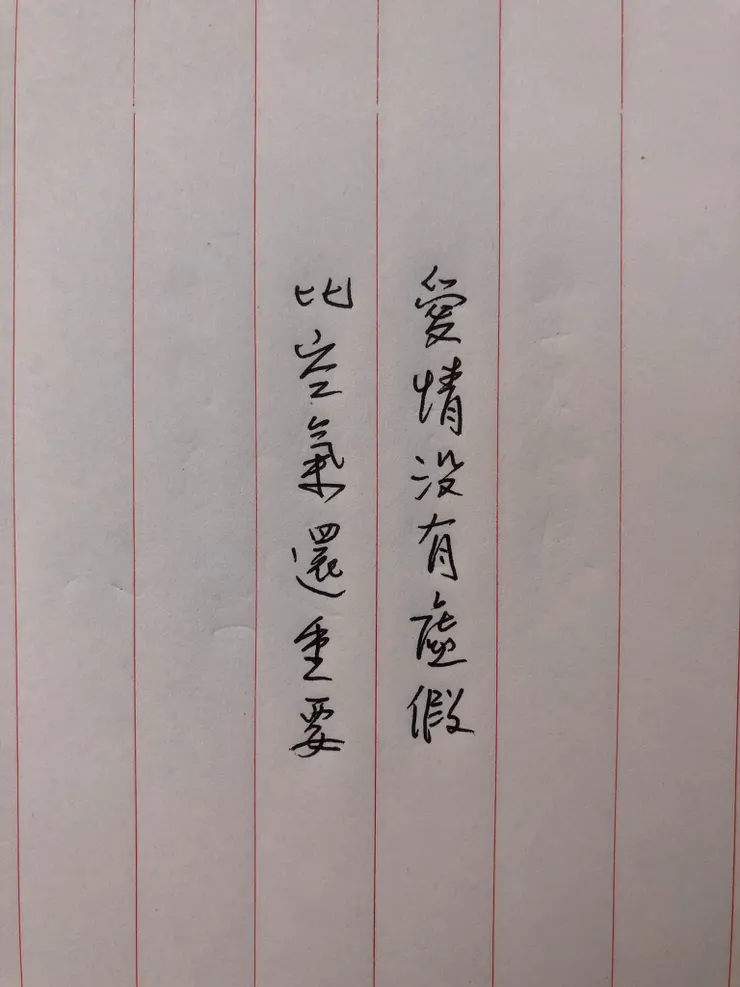 愛情没有虛假
比空氣還重要